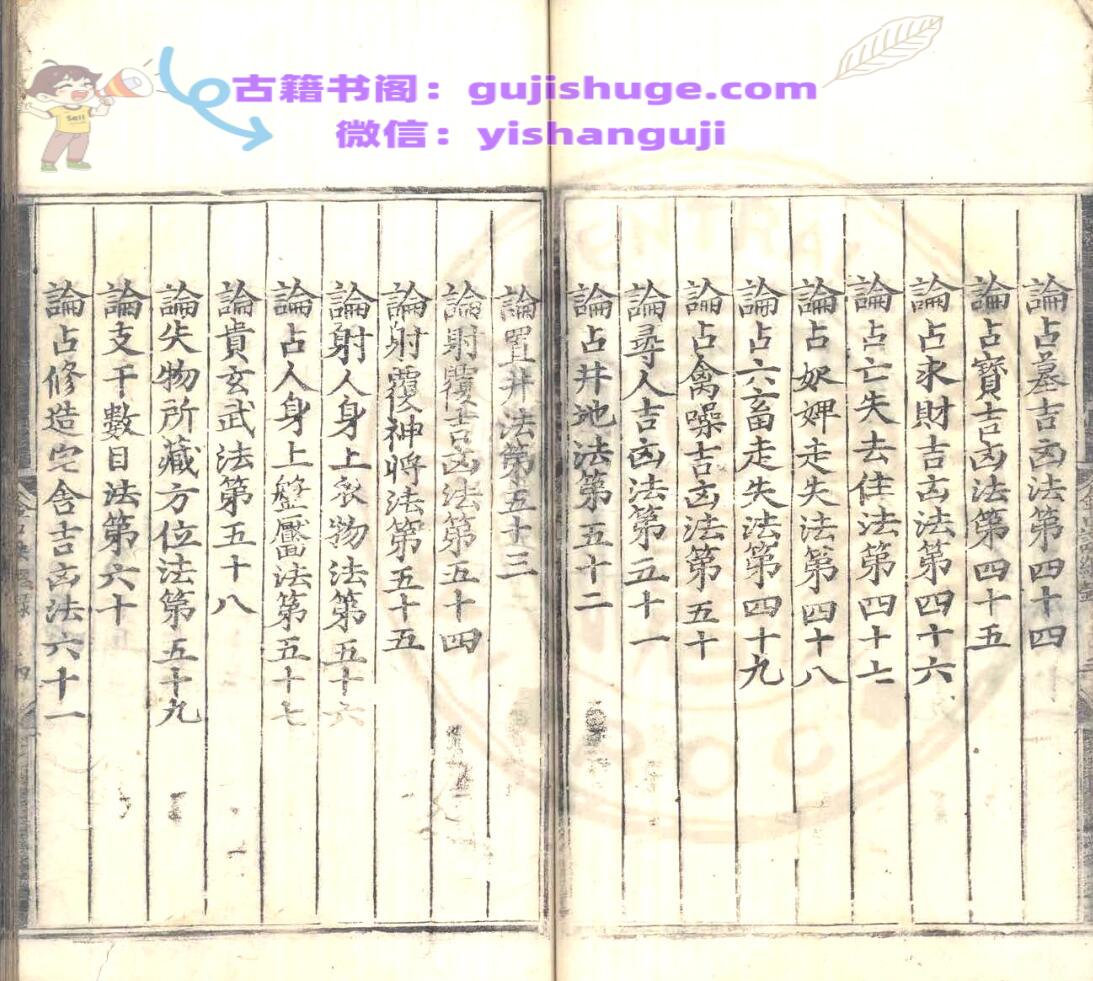 古籍书阁：gujishuge.com
微信：yishanguji
Sell
論占墓吉凶法第四十四
論占寶吉凶法第四十五
論占求財吉凶法第四十六
論占亡失去住法第四十七
論占奴婢走失法第四十八
論占六畜走失法第四十九
論占禽噪吉凶法第五十
論尋人吉凶法第五十一
論占井地法第五十二
論置井法第五十三
論射覆吉凶法第五十四
論射覆神将法第五十五
論射人身上衣物法第五十六
論占人身上盤靨法第五十七
論貴玄武法第五十八
論失物所藏方位法第五十九
論支干數目法第六十
論占修造宅舍吉凶法六十一